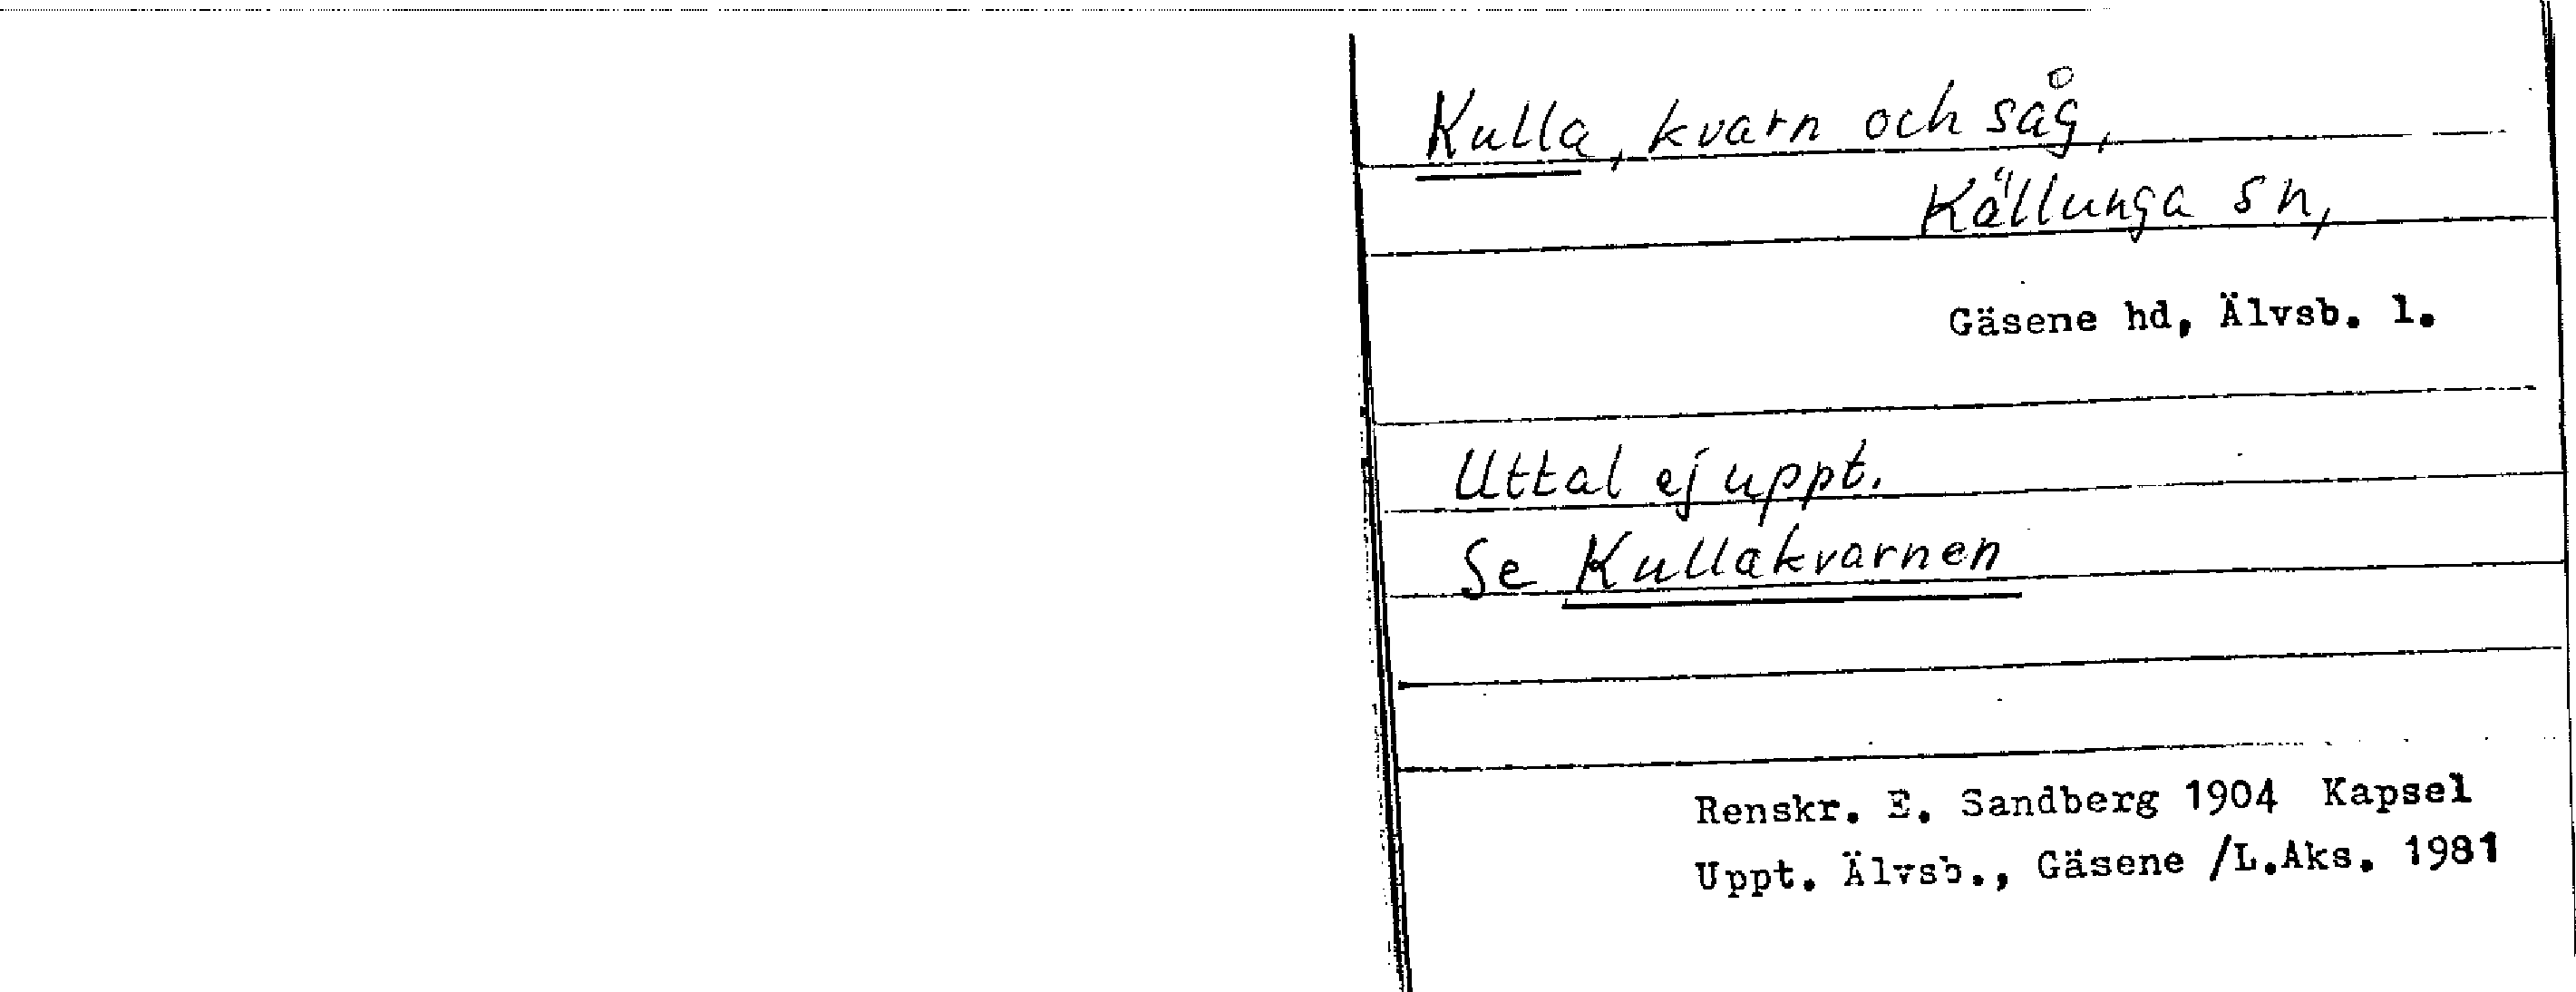 Kulla, kvarn och såg,
Källunga sn,
Gäsene hd, Älvsb. l.
Uttal ej uppt.
Se Kullakvarnen
Renskr. E. Sandberg 1904 Kapsel
Uppt. Älvsb., Gäsene /L.Aks. 1981